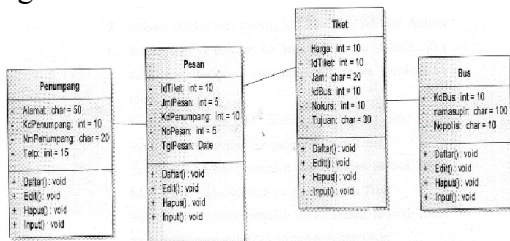 Penumpang
- Alamat: char = 50
- KdPenumpang: int = 10
- NmPenumpang: char = 20
- Telp: int = 15
+ Daftar(): void
+ Edit(): void
+ Hapus(): void
+ Input(): void
Pesan
- IdTiket: int = 10
- JmlPesan: int = 5
- KdPenumpang: int = 10
- NoPesan: int = 5
- TglPesan: Date
+ Daftar(): void
+ Edit(): void
+ Hapus(): void
+ Input(): void
Tiket
- Harga: int = 10
- IdTiket: int = 10
- Jam: char = 20
- KdBus: int = 10
- Nokurs: int = 10
- Tujuan: char = 30
+ Daftar(): void
+ Edit(): void
+ Hapus(): void
+ Input(): void
Bus
- KdBus: int = 10
- namasupir: char = 100
- Nopolisi: char = 10
+ Daftar(): void
+ Edit(): void
+ Hapus(): void
+ Input(): void